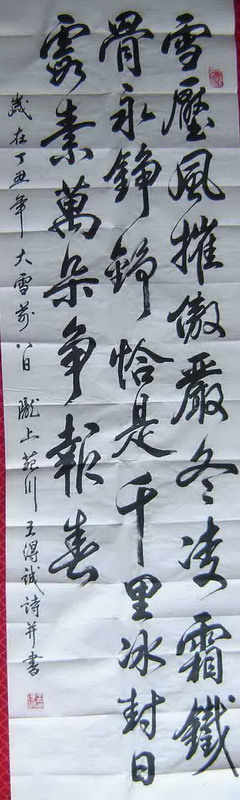 雪壓風摧傲嚴冬凌霜鐵
骨永錚錚恰是千里冰封日
露素萬朵争報春
歲在丁丑年大雪前八日 隴上苑川王得誠詩并書